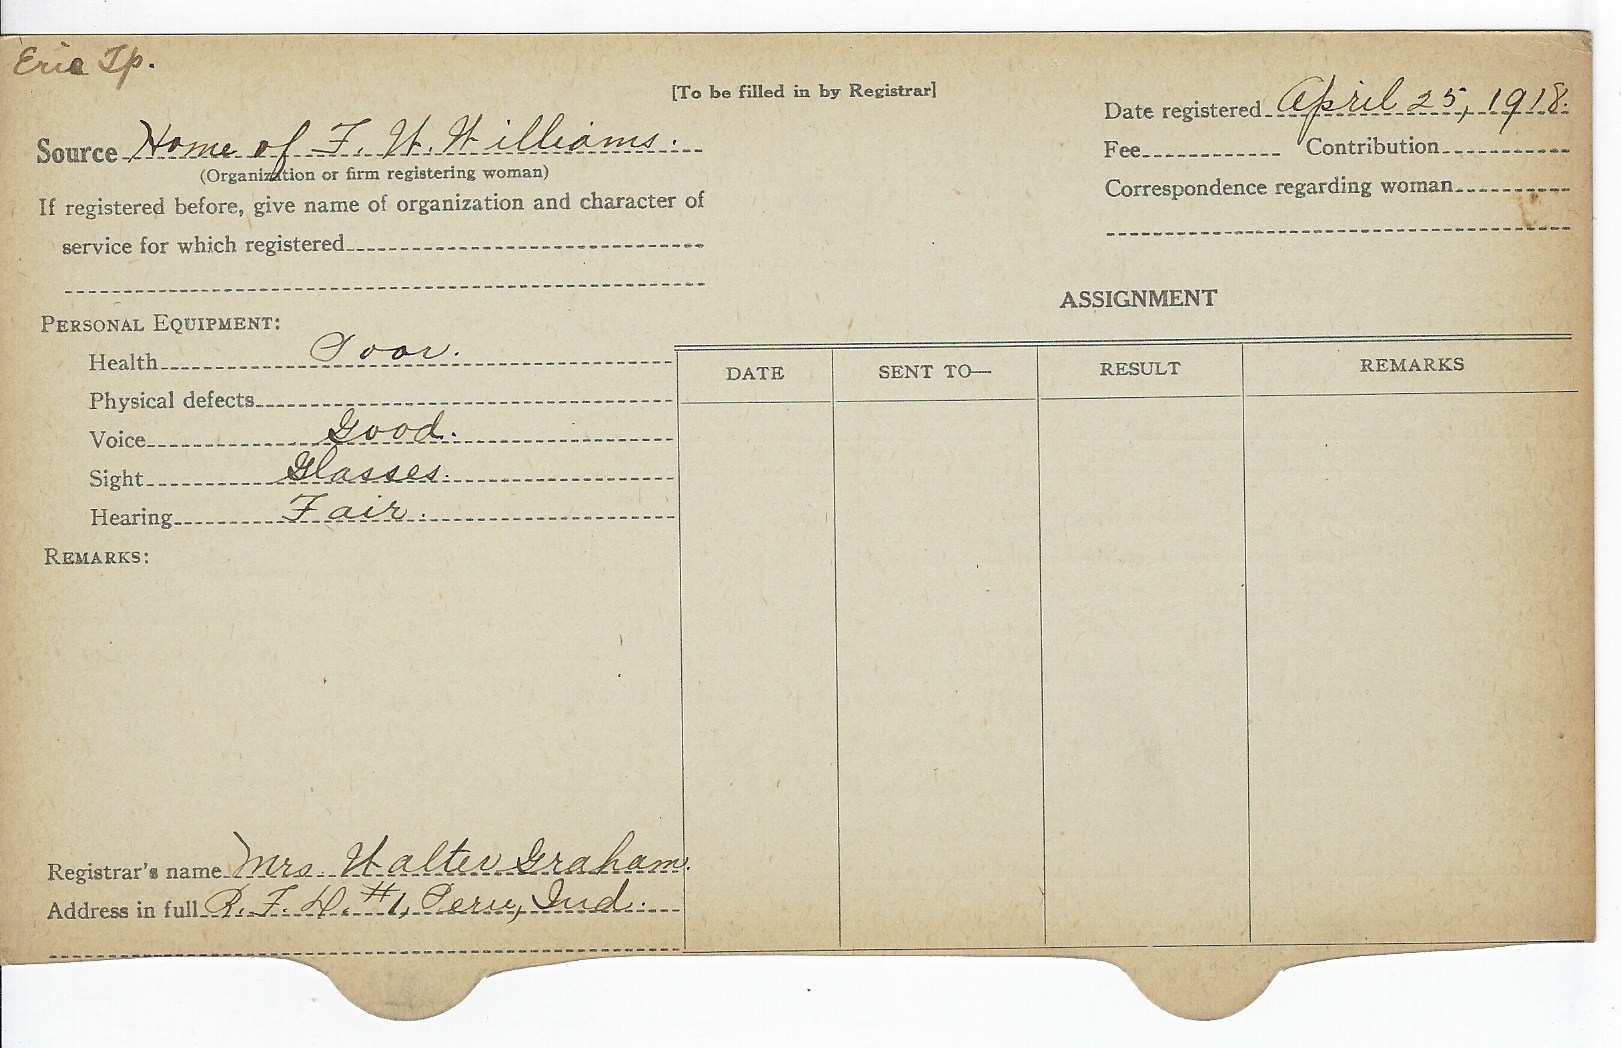 Erie Tp.
[To be filled in by Registrar]
Date registered April 25, 1918.
Source Home of F. W. Williams.
(Organization or firm registering woman)
Fee Contribution
Correspondence regarding woman
If registered before, give name of organization and character of
service for which registered
ASSIGNMENT
PERSONAL EQUIPMENT:
Health Poor.
Physical defects
Voice Good.
Sight Glasses.
Hearing Fair.
REMARKS:
DATE SENT TO— RESULT REMARKS
Registrar's name Mrs. Walter Graham.
Address in full R. F. D. #1, Peru, Ind.